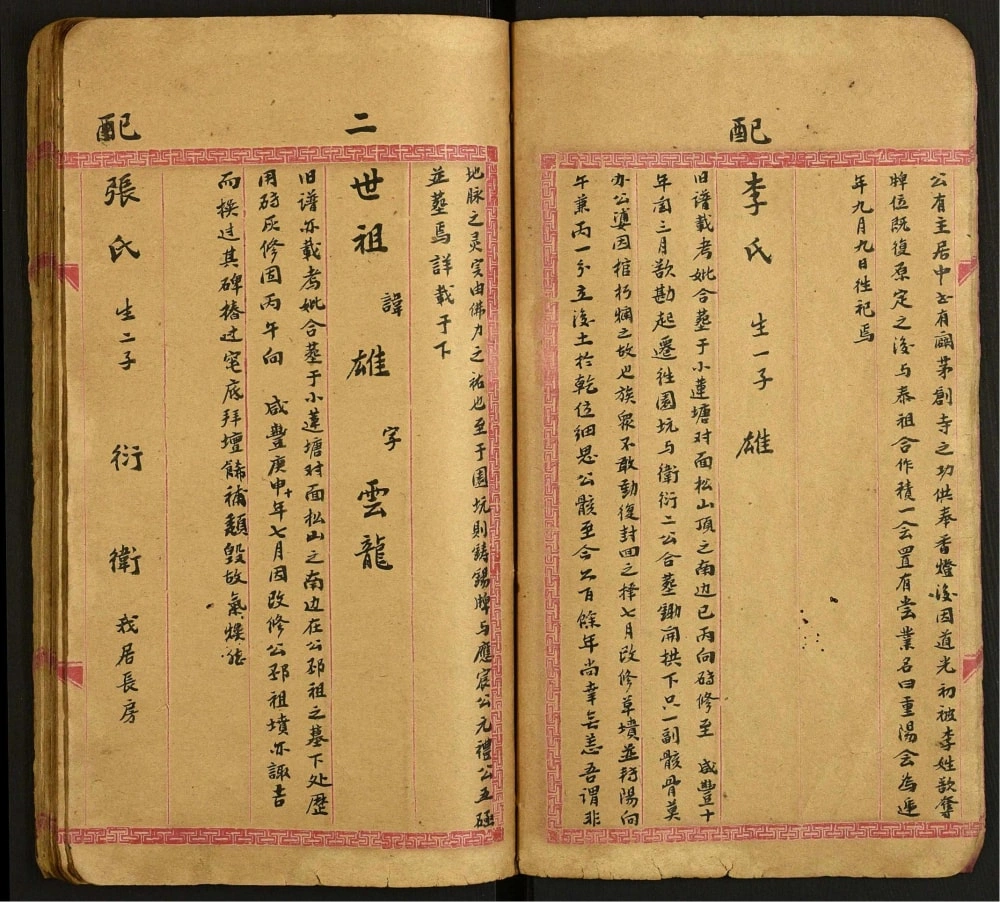 公有主居中也有顧茅創寺之功供奉香燈後因道光初被李姓欲奪
牌位既復原定之後与泰祖合作積一会置有尝業名曰重湯会為運
年九月九日徃祀焉
配 李氏 生一子 雄
旧谱載考妣合墓于小蓮塘对面松山頂之南边已丙向砖修至 咸豐十
年閏三月欲勘起遷徃園坑与衛衍二公合墓鋤開拱下只一副骸骨莫
办公婆因棺朽爛之故也族衆不敢動復封回之擇七月改修草墳並转陽向
午兼丙一分立後土於乾位细思公骸至今六百餘年尚幸无恙吾謂非
地脉之灵实由佛力之祐也至于園坑則鋳錫牌与應宸公元禮公五
並墓焉詳載于下
二世祖 諱 雄 字 雲龍
旧谱亦載考妣合墓于小蓮塘对面松山之南边在公郄祖之墓下处歷
用砖灰修固丙午向 咸豐庚申十年七月因改修公郄祖墳亦諏吉
而换过其碑樁过宅底拜壇餙補頽毁故氣焕然
配 張氏 生二子 衍 衛 我居長房